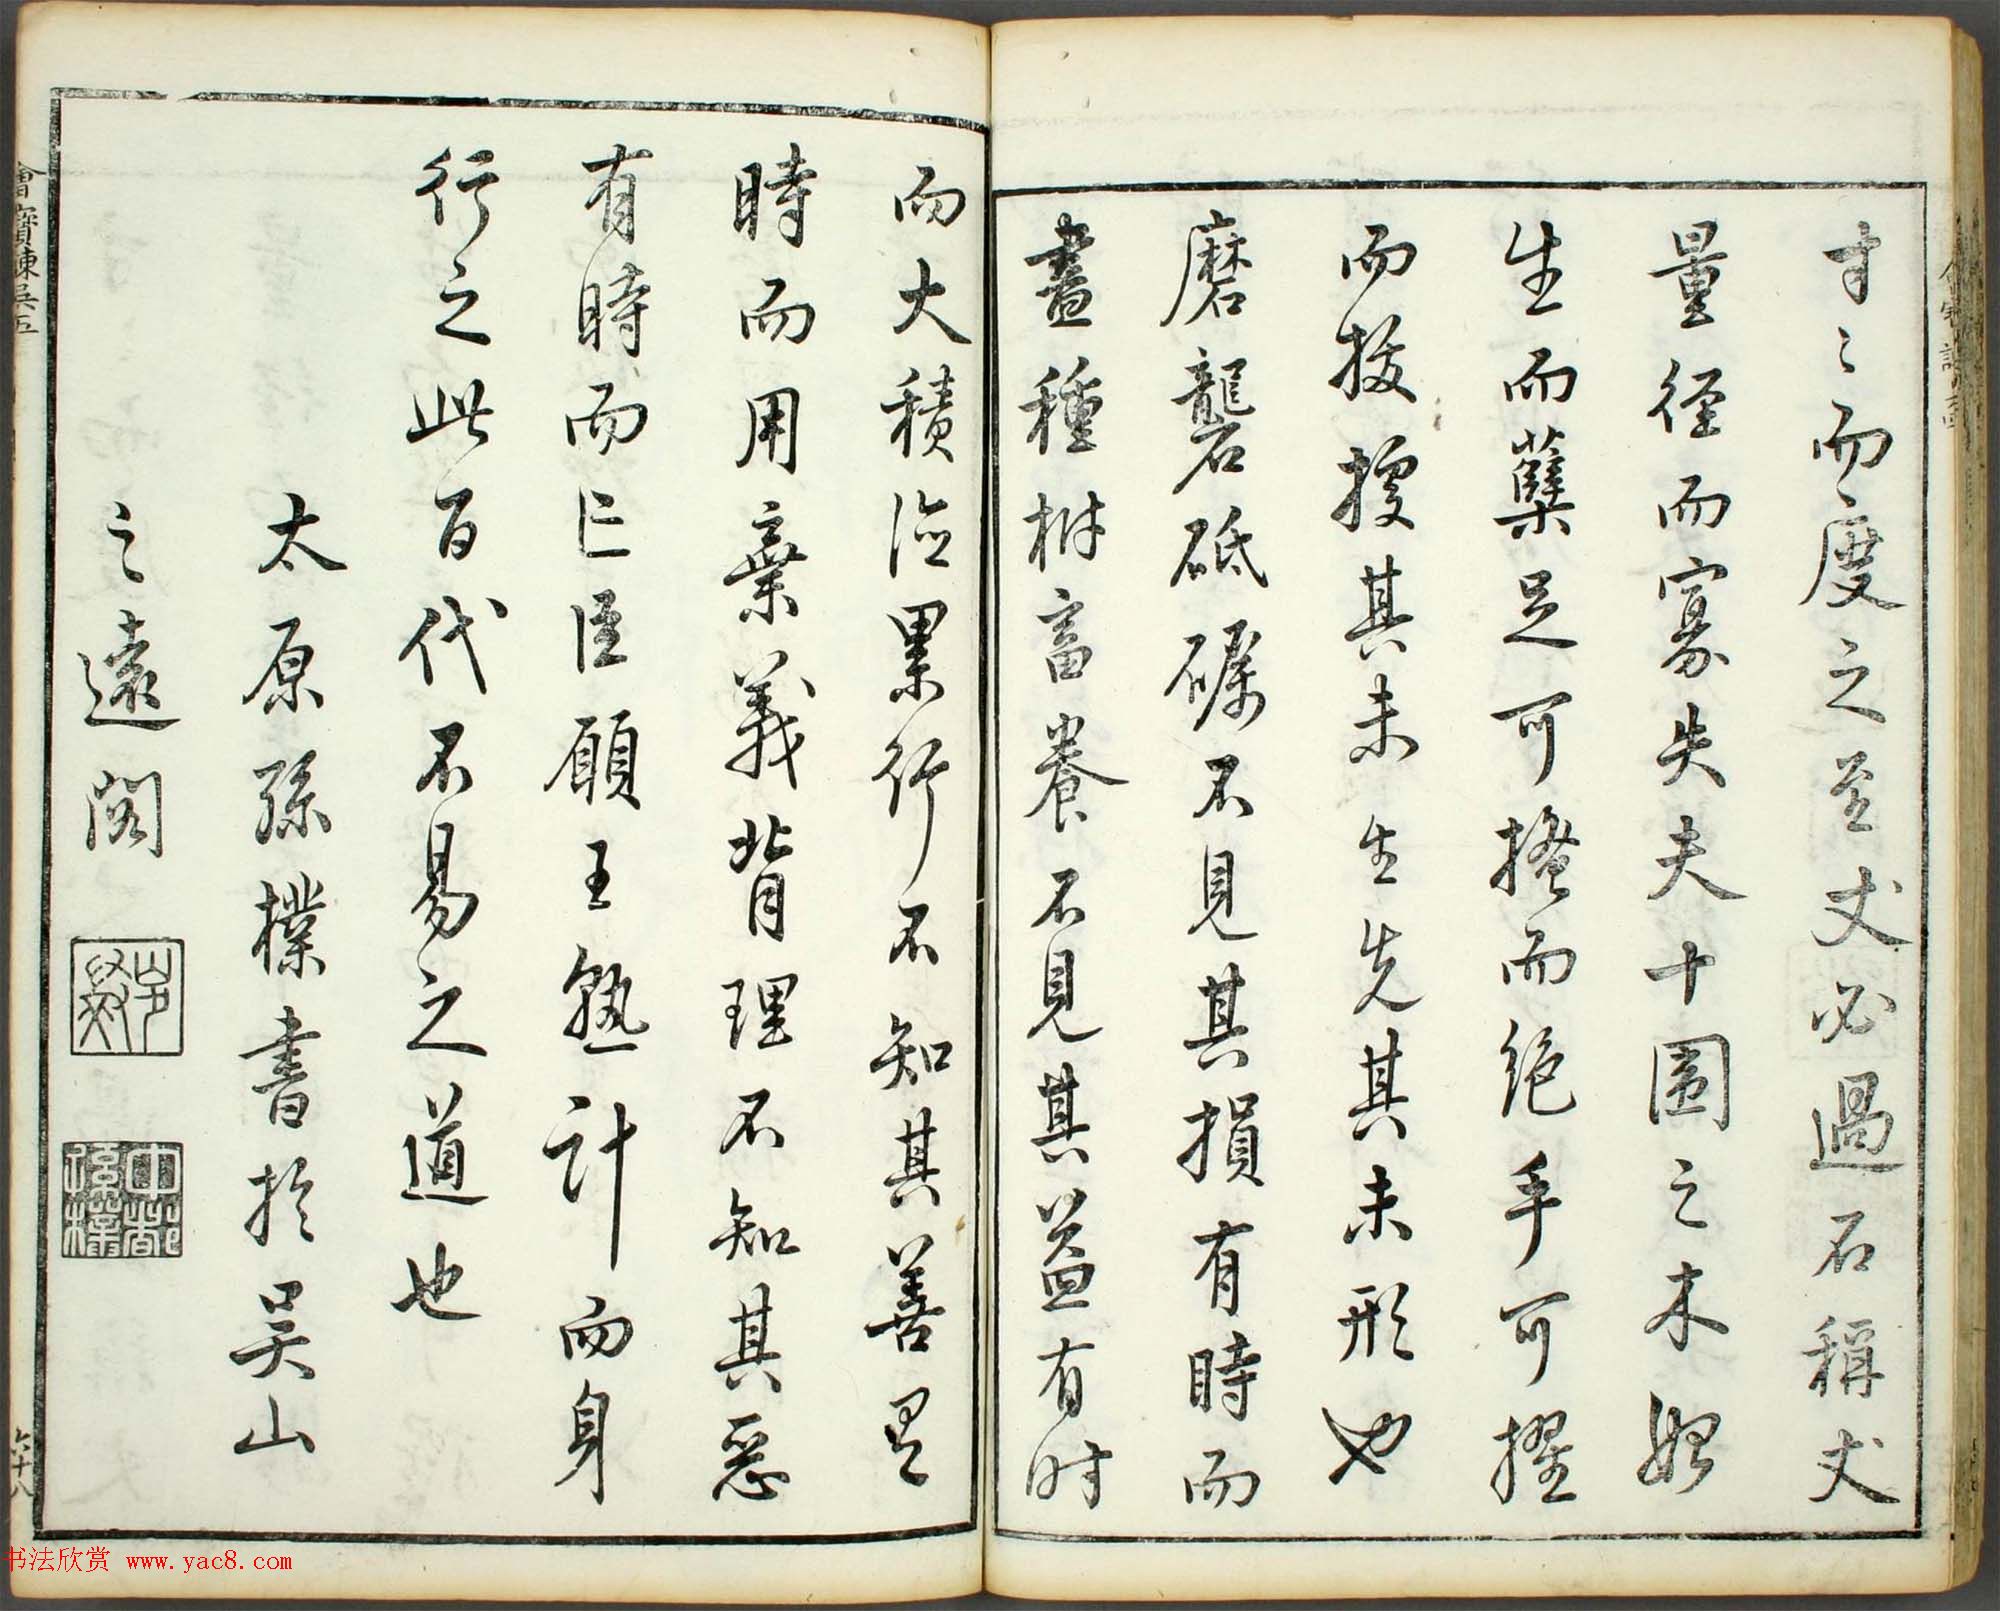 寸之而度之至丈必過石稱丈
量徑而寡失夫十圍之木始
生而蘖足可搔而絕手可擢
而拔據其未生先其未形也
磨礱砥礪不見其損有時而
盡種樹畜養不見其益有时
而大積德累行不知其善有
時而用棄義背理不知其惡
有時而亡臣願王熟計而身
行之此百代不易之道也
太原孫樸書於吳山
之遠閣
六十八
书法欣赏 www.yac8.com